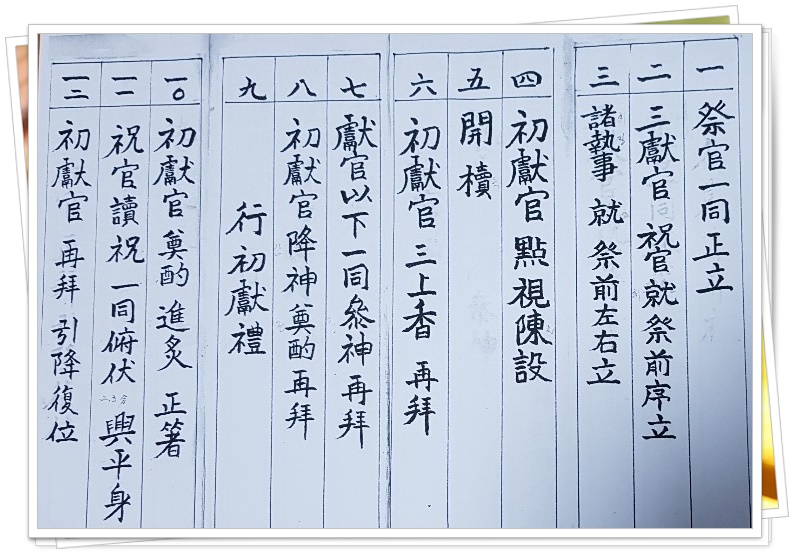 一
祭官一同正立
二
三獻官 祝官就祭前序立
三
諸執事 就 祭前左右立
四
初獻官 點視陳設
五
開櫝
六
初獻官 三上香 再拜
七
獻官以下一同參神再拜
八
初獻官降神奠酌再拜
九
行初獻禮
一〇
初獻官 奠酌 進炙 正箸
一一
祝官讀祝 一同俯伏 興平身
一二
初獻官 再拜 引降復位